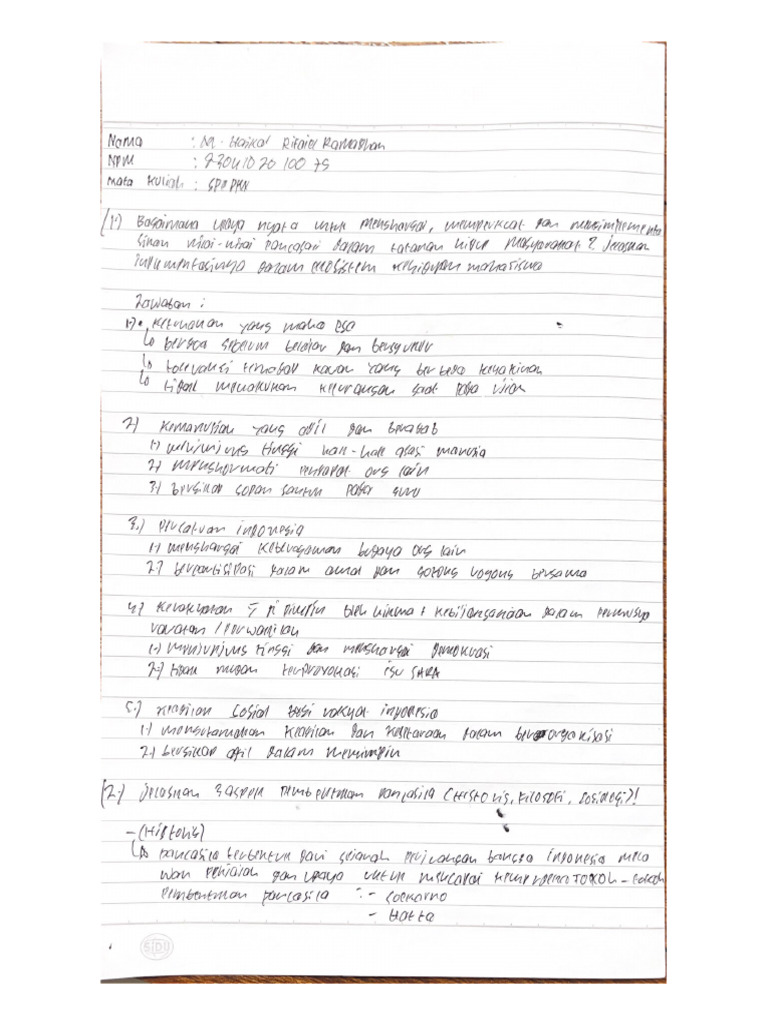 Nama : M. Haikal Rifaiel Ramadhan
NPM : 2304102010075
Mata kuliah : SPO PKN
(1.) Bagaimana upaya nyata untuk menghargai, memperkuat dan mengimplementa
sikan nilai-nilai pancasila dalam tatanan hidup masyarakat? Jelaskan
implementasinya dalam ekosistem kehidupan mahasiswa
Jawaban :
1) • Ketuhanan yang maha esa
↳ berdoa sebelum belajar dan bersyukur
↳ toleransi terhadap kawan yang berbeda keyakinan
↳ tidak melakukan kecurangan saat pada ujian
2) Kemanusian yang adil dan beradab
1.) menjunjung tinggi hak-hak asasi manusia
2.) menghormati pendapat org lain
3.) bersikap sopan santun pada guru
3.) Persatuan indonesia
1.) menghargai keberagaman budaya org lain
2.) berpartisipasi dalam amal dan gotong royong bersama
4.) Kerakyatan yg di pimpin oleh hikmat kebijaksanaan dalam permusya
waratan / perwakilan
1.) menjunjung tinggi dan menghargai demokrasi
2.) tidak mudah terprovokasi isu SARA
5.) Keadilan sosial bagi rakyat indonesia
1.) mengutamakan keadilan dan kesetaraan dalam berorganisasi
2.) bersikap adil dalam memimpin
(2.) Jelaskan 3 aspek pembentukan pancasila (Historis, Filosofi, Sosiologi)!
- (Historis)
↳ pancasila terbentuk dari sejarah perjuangan bangsa indonesia mela
wan penjajah dan upaya untuk mencapai Tokoh - tokoh
Pembentukan pancasila : - Soekarno
- Hatta
SIDU